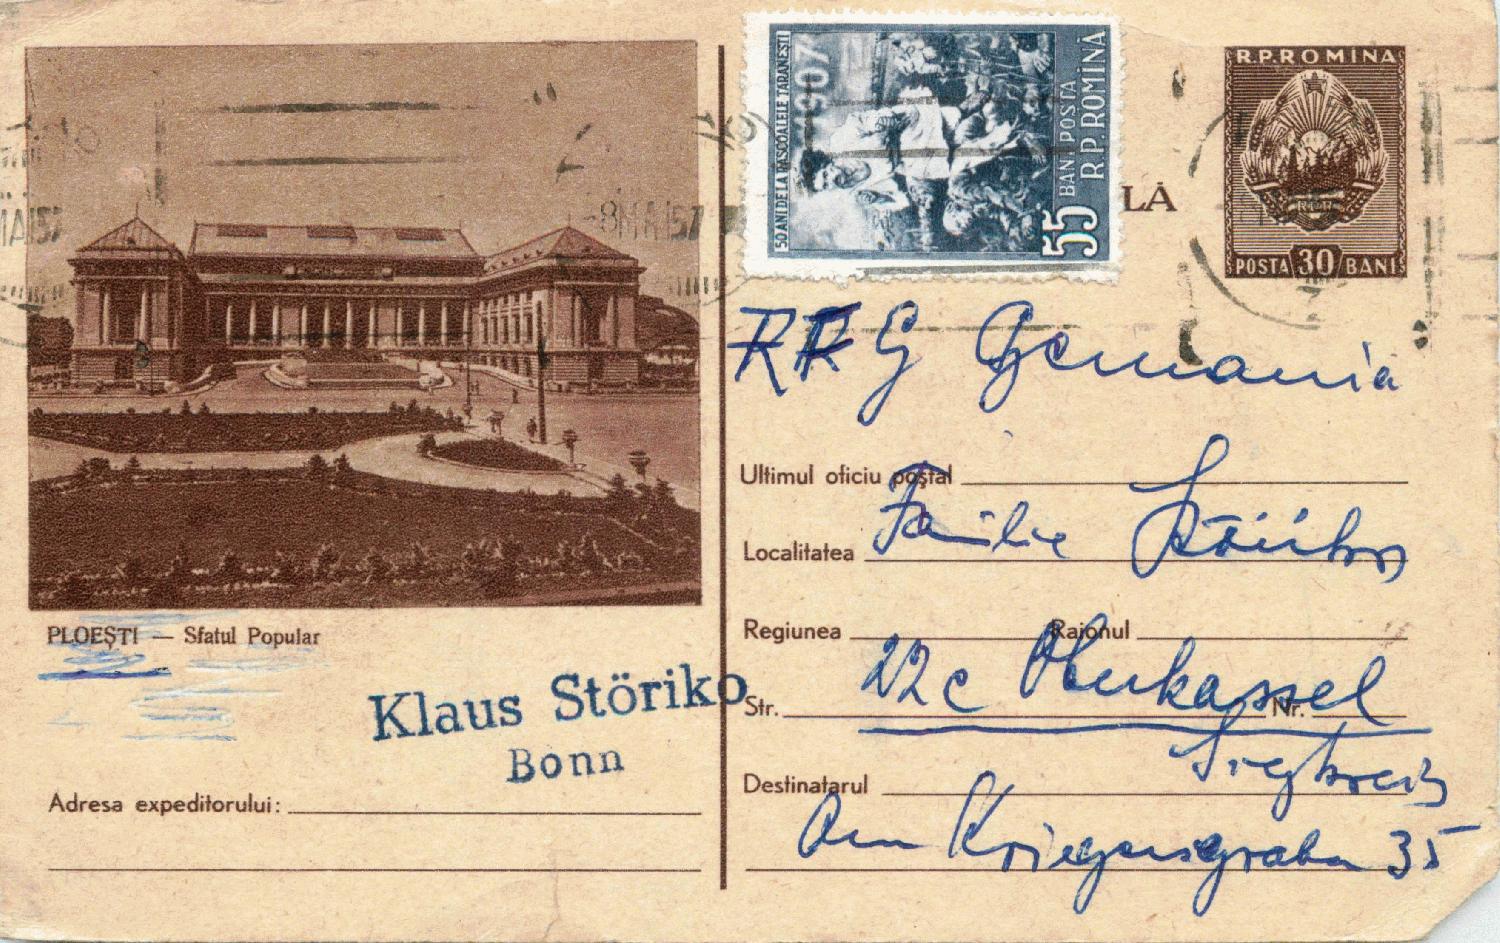 50 ANI DE LA RASCOALELE TARANESTI
1907
55 BANI POSTA
R.P. ROMÎNĂ
LĂ
R.P.ROMINA
POSTA 30 BANI
MAI57
-8MAI57
Germania
Ultimul oficiu poştal
Familie Störiko
Localitatea
Regiunea Raionul
22c Oberkassel
Str. Nr.
Siegkreis
Destinatarul
Am Kriegersgraben 35
PLOEŞTI — Sfatul Popular
Klaus Störiko
Bonn
Adresa expeditorului: